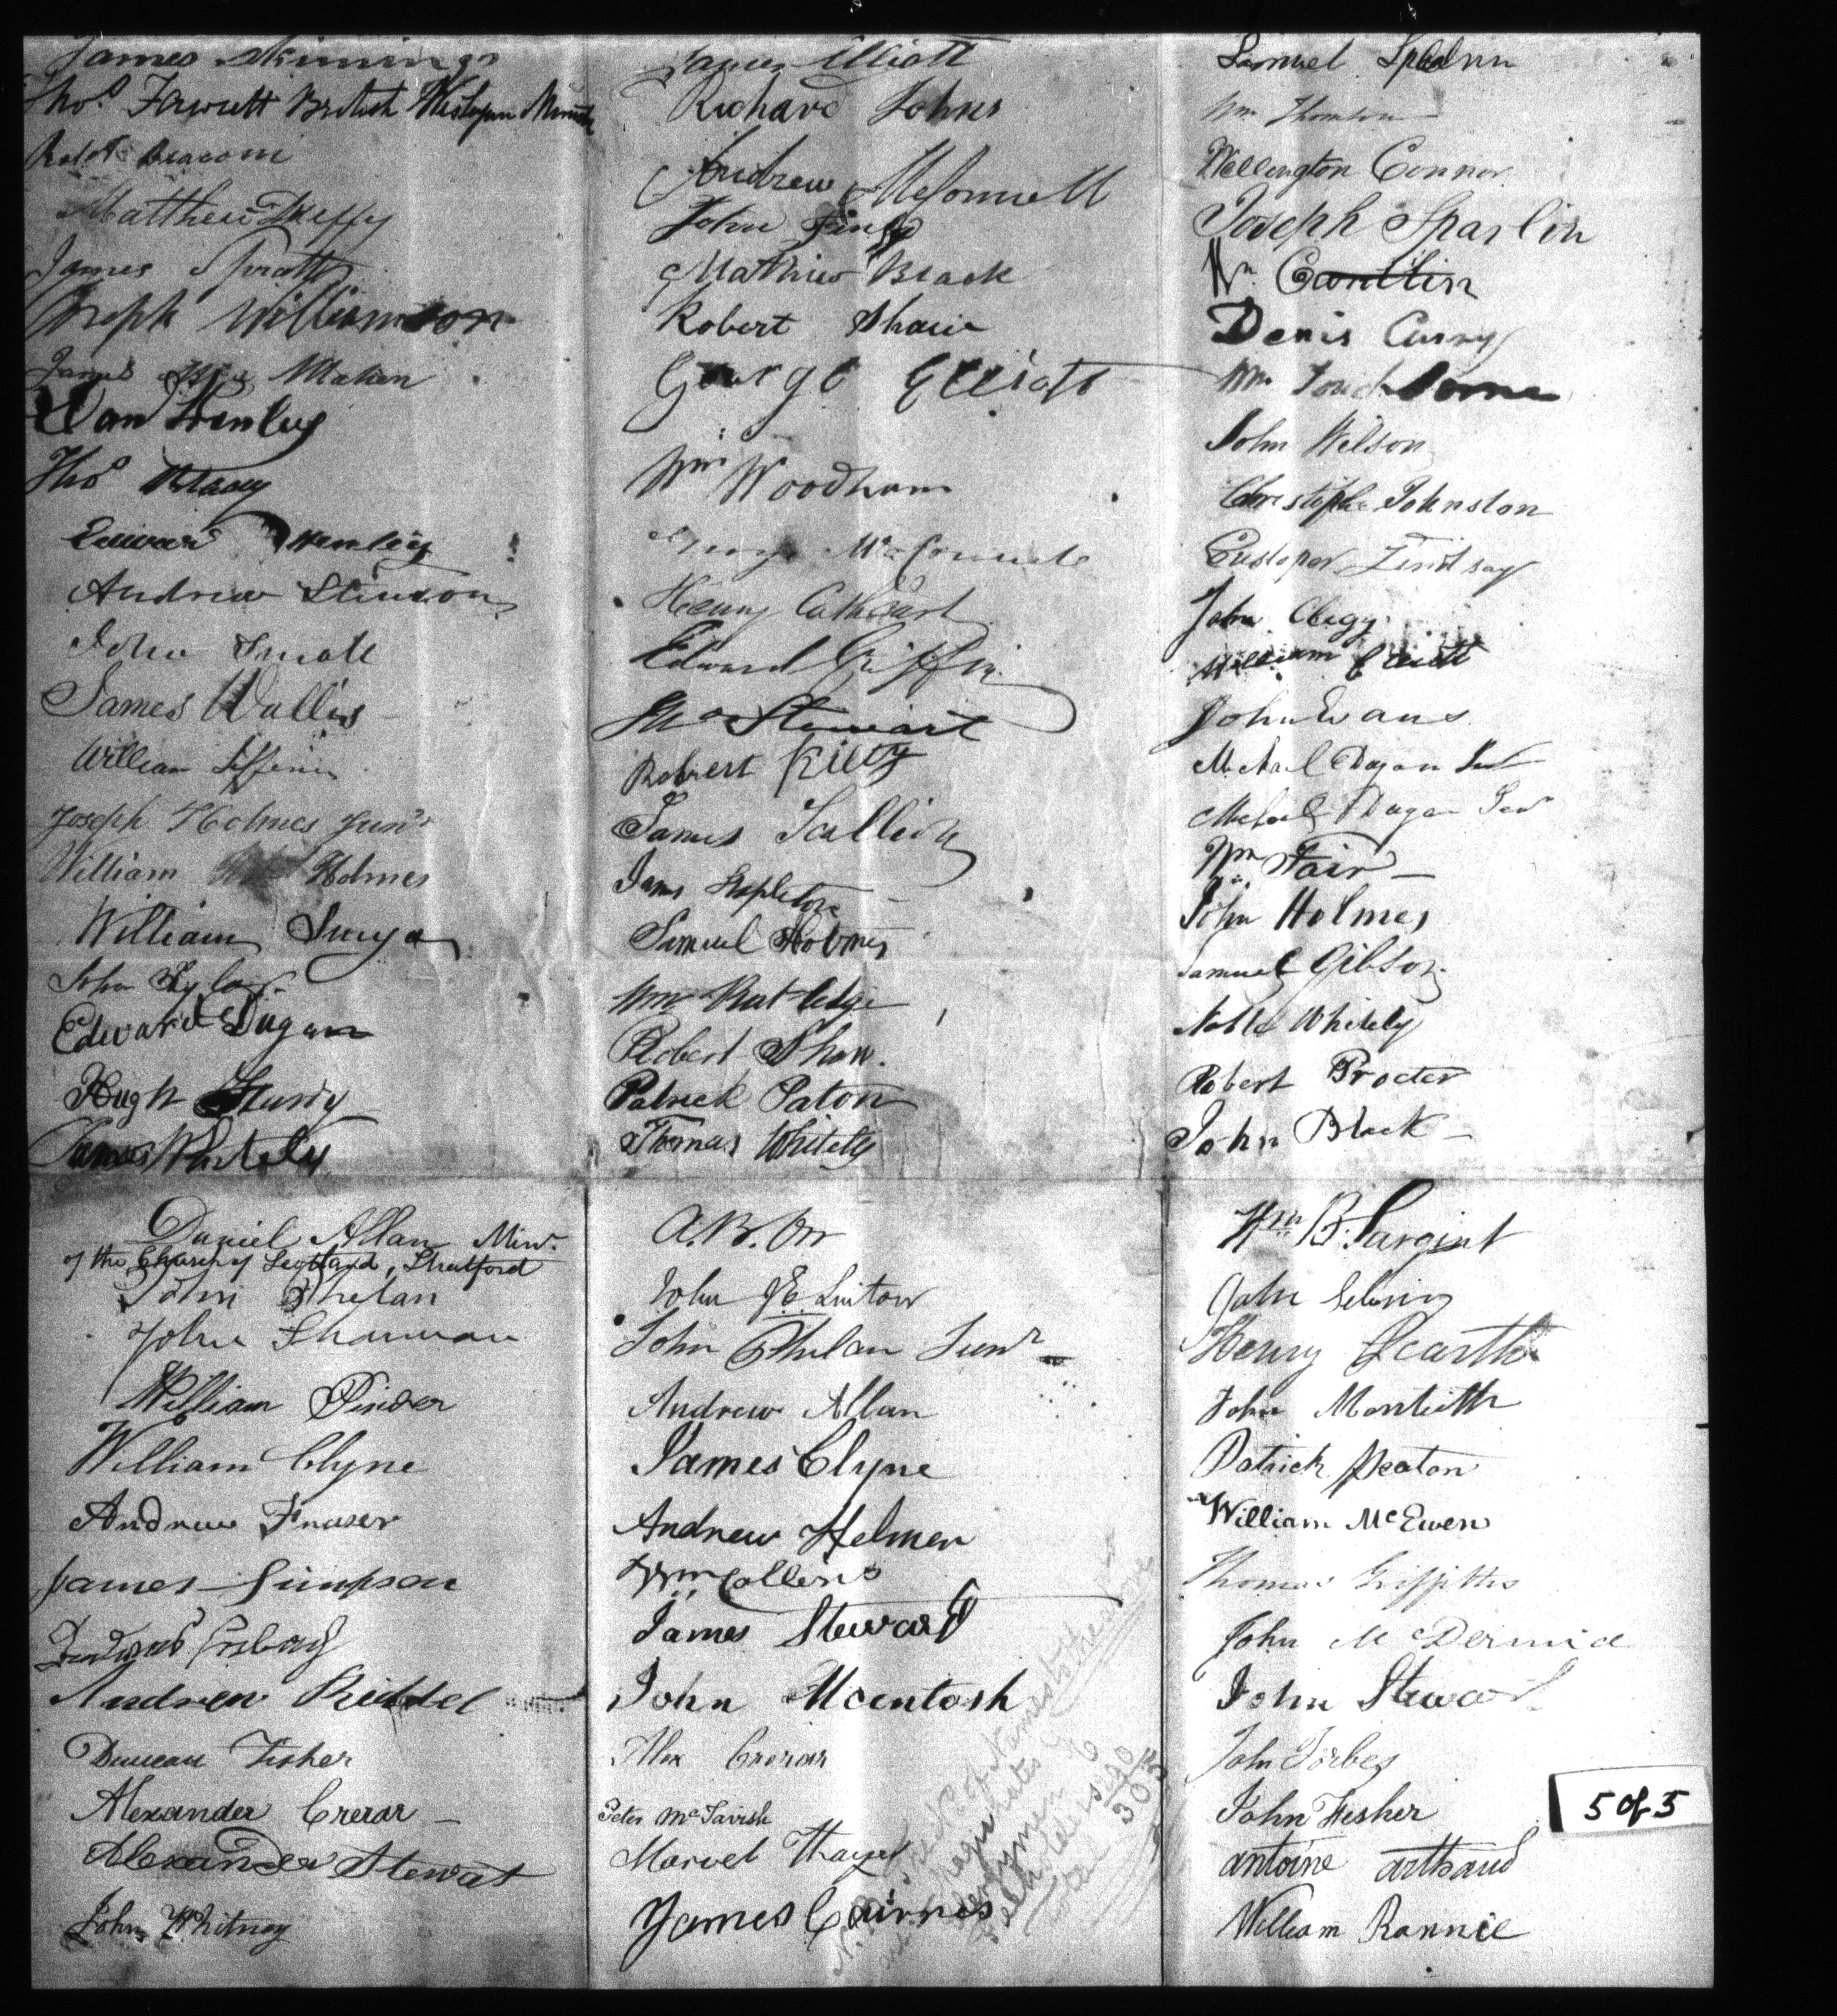 James Skinnings
Thos. Fawcett British Wesleyan Minister
Robt.
Matthew Duffy
James Spratt
Joseph Williamson
James Mahon
Dan Henley
Thos
Edward Henley
Andrew Stinson
John Small
James Wallis
William
Joseph Holmes Junr
William Holmes
William
John Taylor
Edward Dugan
Hugh
James Whitely
James Elliott
Richard Johns
Andrew McConnell
John
Mathew Black
Robert Shaw
George Elliott
Wm Woodham
George
Henry Cathcart
Edward Griffin
Thos Stewart
Robert Kiley
James Scullion
James Stapleton
Samuel Holmes
Wm Rutledge
Robert Shaw.
Patrick Paton
Thomas Whitely
Samuel
Wm Thomson
Wellington Connor
Joseph Sparlin
Wm Cantlin
Denis Curry
Wm Touchborne
John Wilson
Christopher Johnston
Lindsay
John Clegg
William Elliott
John Evans
Michael Dugan
Michael Dugan Sen
Wm Fair
John Holmes
Samuel Gibson
Noble Whitely
Robert Procter
John Black
Daniel Allan Minr.
of the Church of Scotland, Stratford
John Phelan
John Sharman
William Pinder
William Clyne
Andrew Fraser
James Simpson
Andrew Riddel
Duncan Fisher
Alexander Crerar
Alexander Stewat
John Whitney
A. B. Orr
John J E Linton
John Phelan Junr
Andrew Allan
James Clyne
Andrew Helmer
Wm Collens
James Steward
John Mcentosh
Alex Crerar
Peter McTavish
Marvel Thayer
James Cairnes
N.B. The No. of Names to the above
are Magistrates
Clergymen
Total 305
Wm B. Sargint
John
Henry Scarth
John Monteith
Patrick Peaton
William McEwen
Thomas Griffiths
John McDermid
John Stewart
John Forbes
John Fisher
antoine arthaud
William Rannie
5 of 5